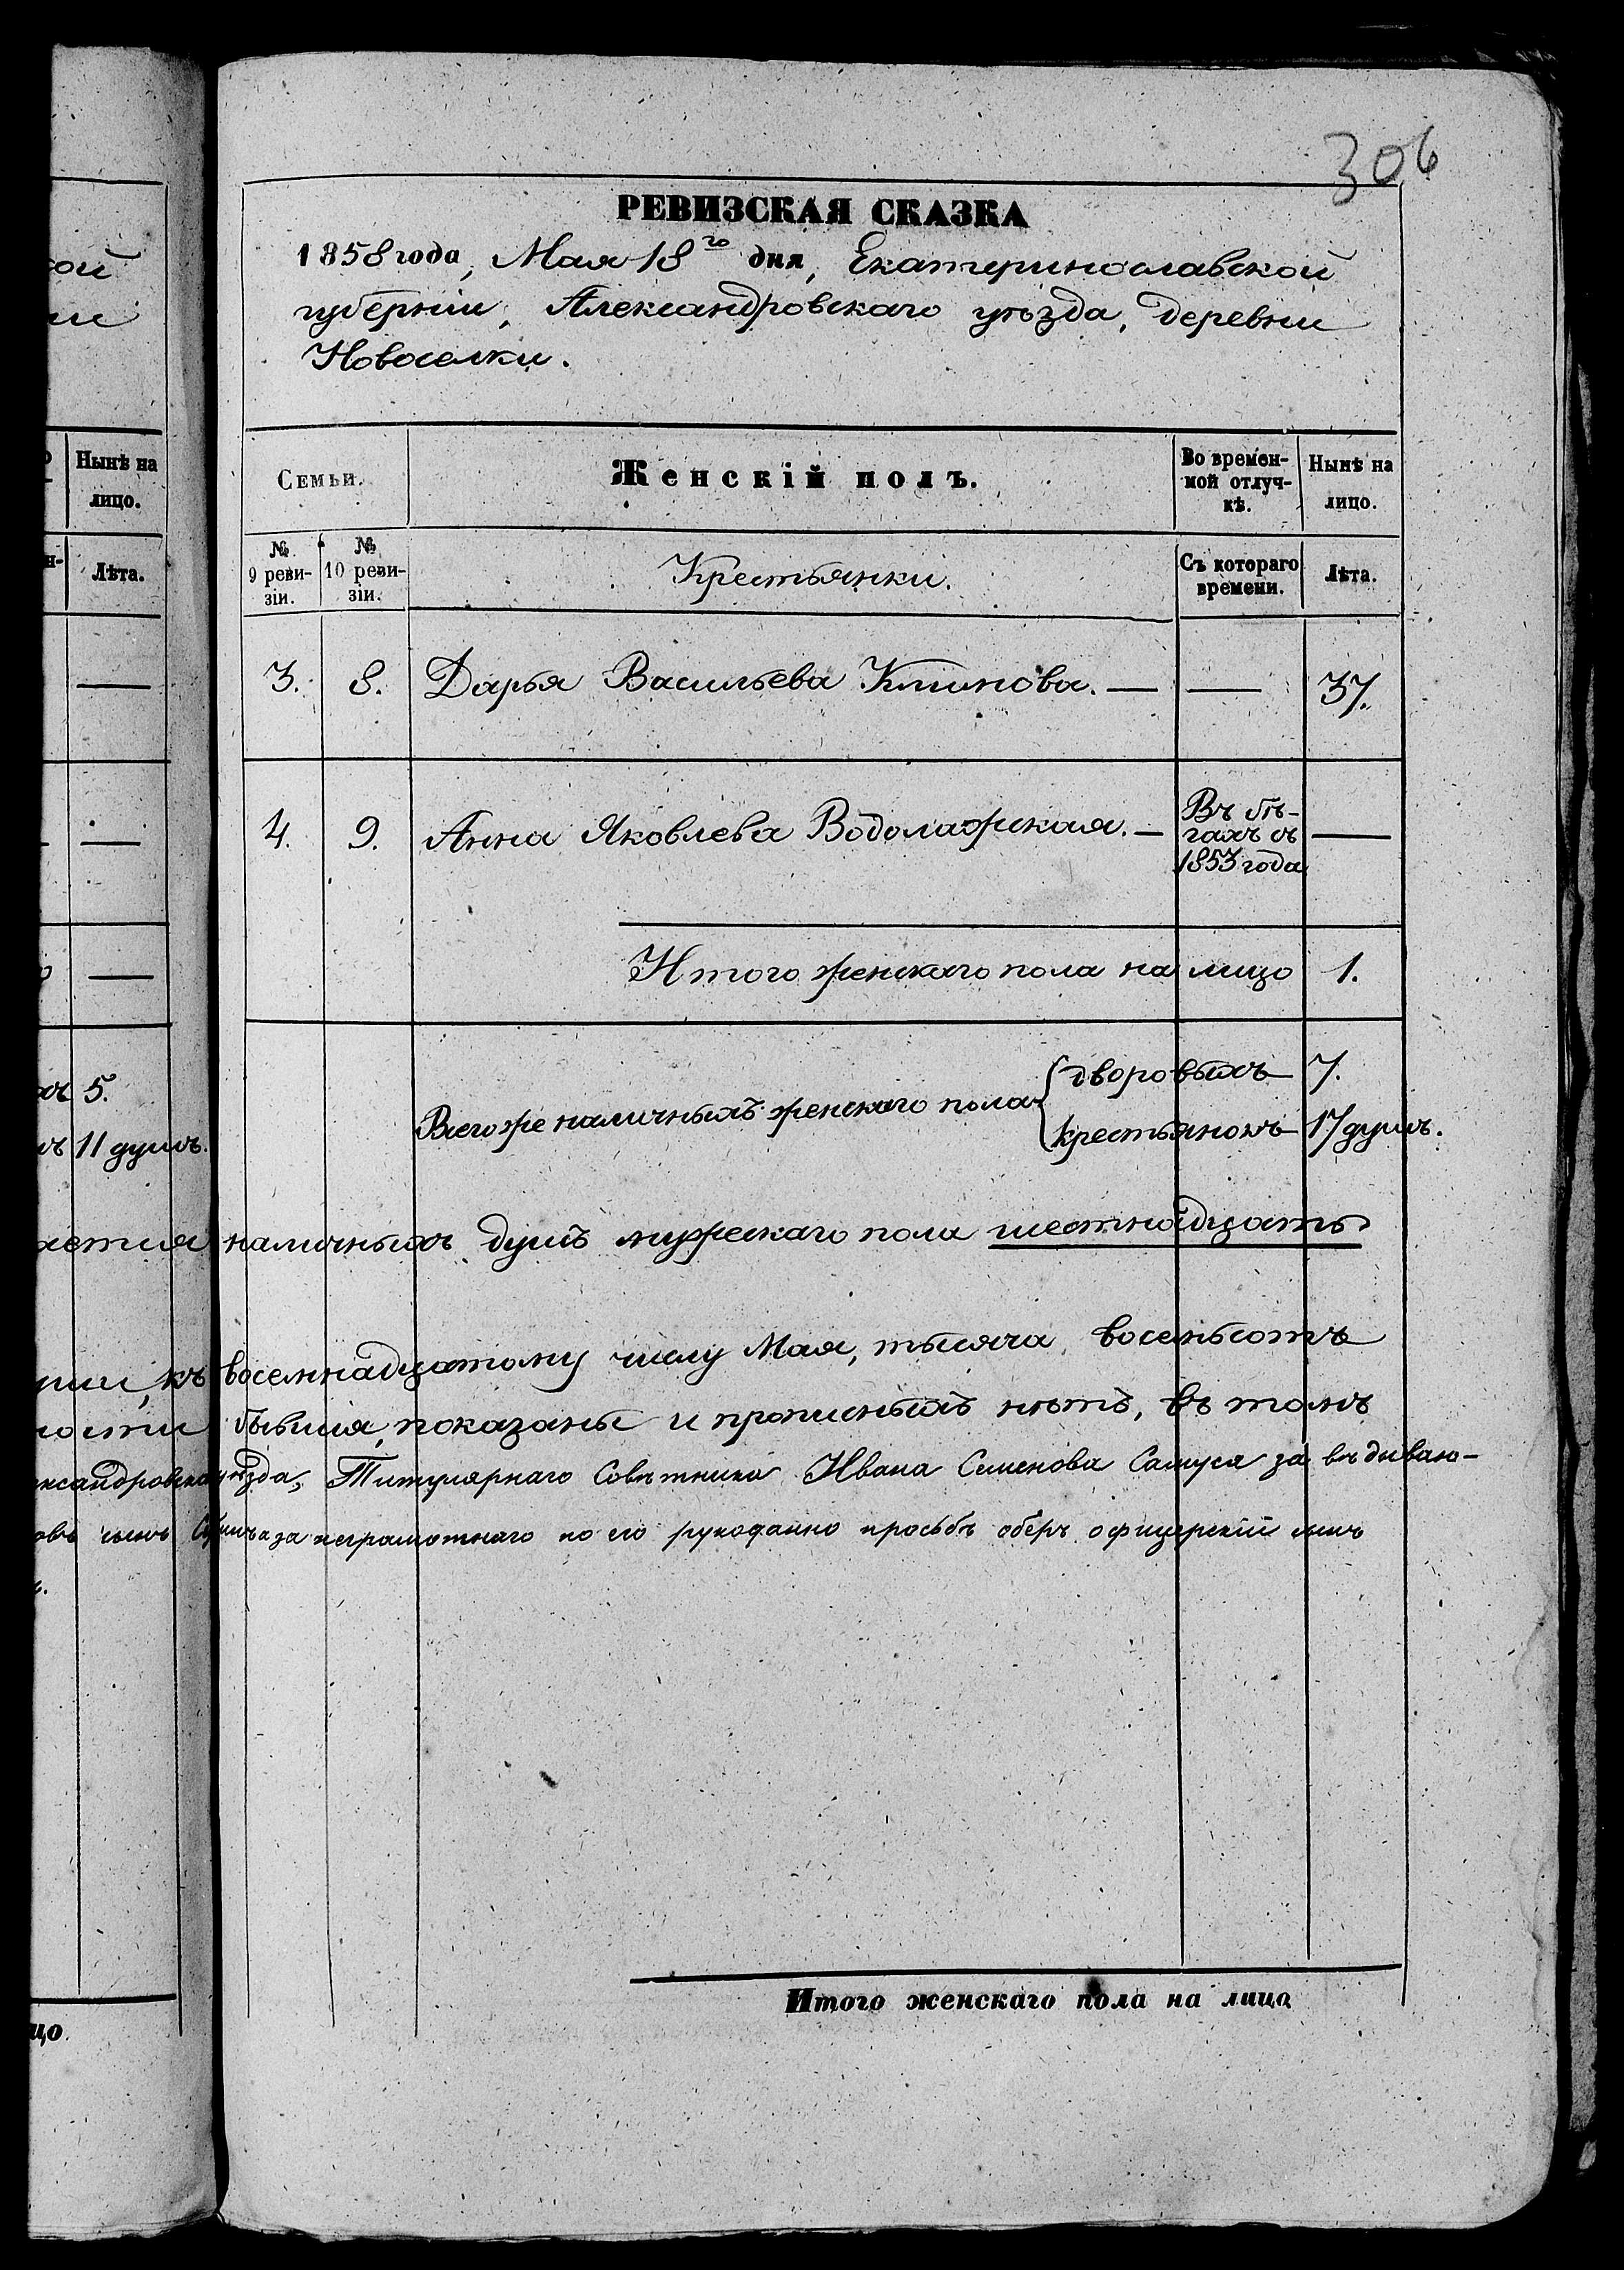 306
РЕВИЗСКАЯ СКАЗКА
1858 года, Мая 18го дня, Екатеринославской
губерніи, Александровскаго уѣзда, деревни
Новоселки.
Семьи.
Женскій полъ.
Во времен-
ной отлуч-
кѣ.
Нынѣ на
лицо.
№
9 реви-
зіи.
№
10 реви-
зіи.
Крестьянки.
Съ котораго
времени.
Лѣта.
3. 8. Дарья Васильева Климова. — — 37.
4. 9. Анна Яковлева Водолажская. — Въ бѣ-
гахъ съ
1853 года —
Итого женскаго пола на лицо 1.
Всего же наличныхъ женскаго пола дворовыхъ 7.
крестьянокъ 17 душъ.
наличныхъ душъ мужескаго пола шестнадцать
къ восемнадцатому числу Мая, тысяча восемьсотъ
бывшія, показаны и прописныхъ нѣтъ, въ томъ
уѣзда, Титулярнаго Совѣтника Ивана Семенова Самуся за
а за неграмотнаго по его рукоданно просьбѣ оберъ офицерскій сынъ
Итого женскаго пола на лицо
Нынѣ на
лицо.
Лѣта.
—
—
—
5.
11 душъ.